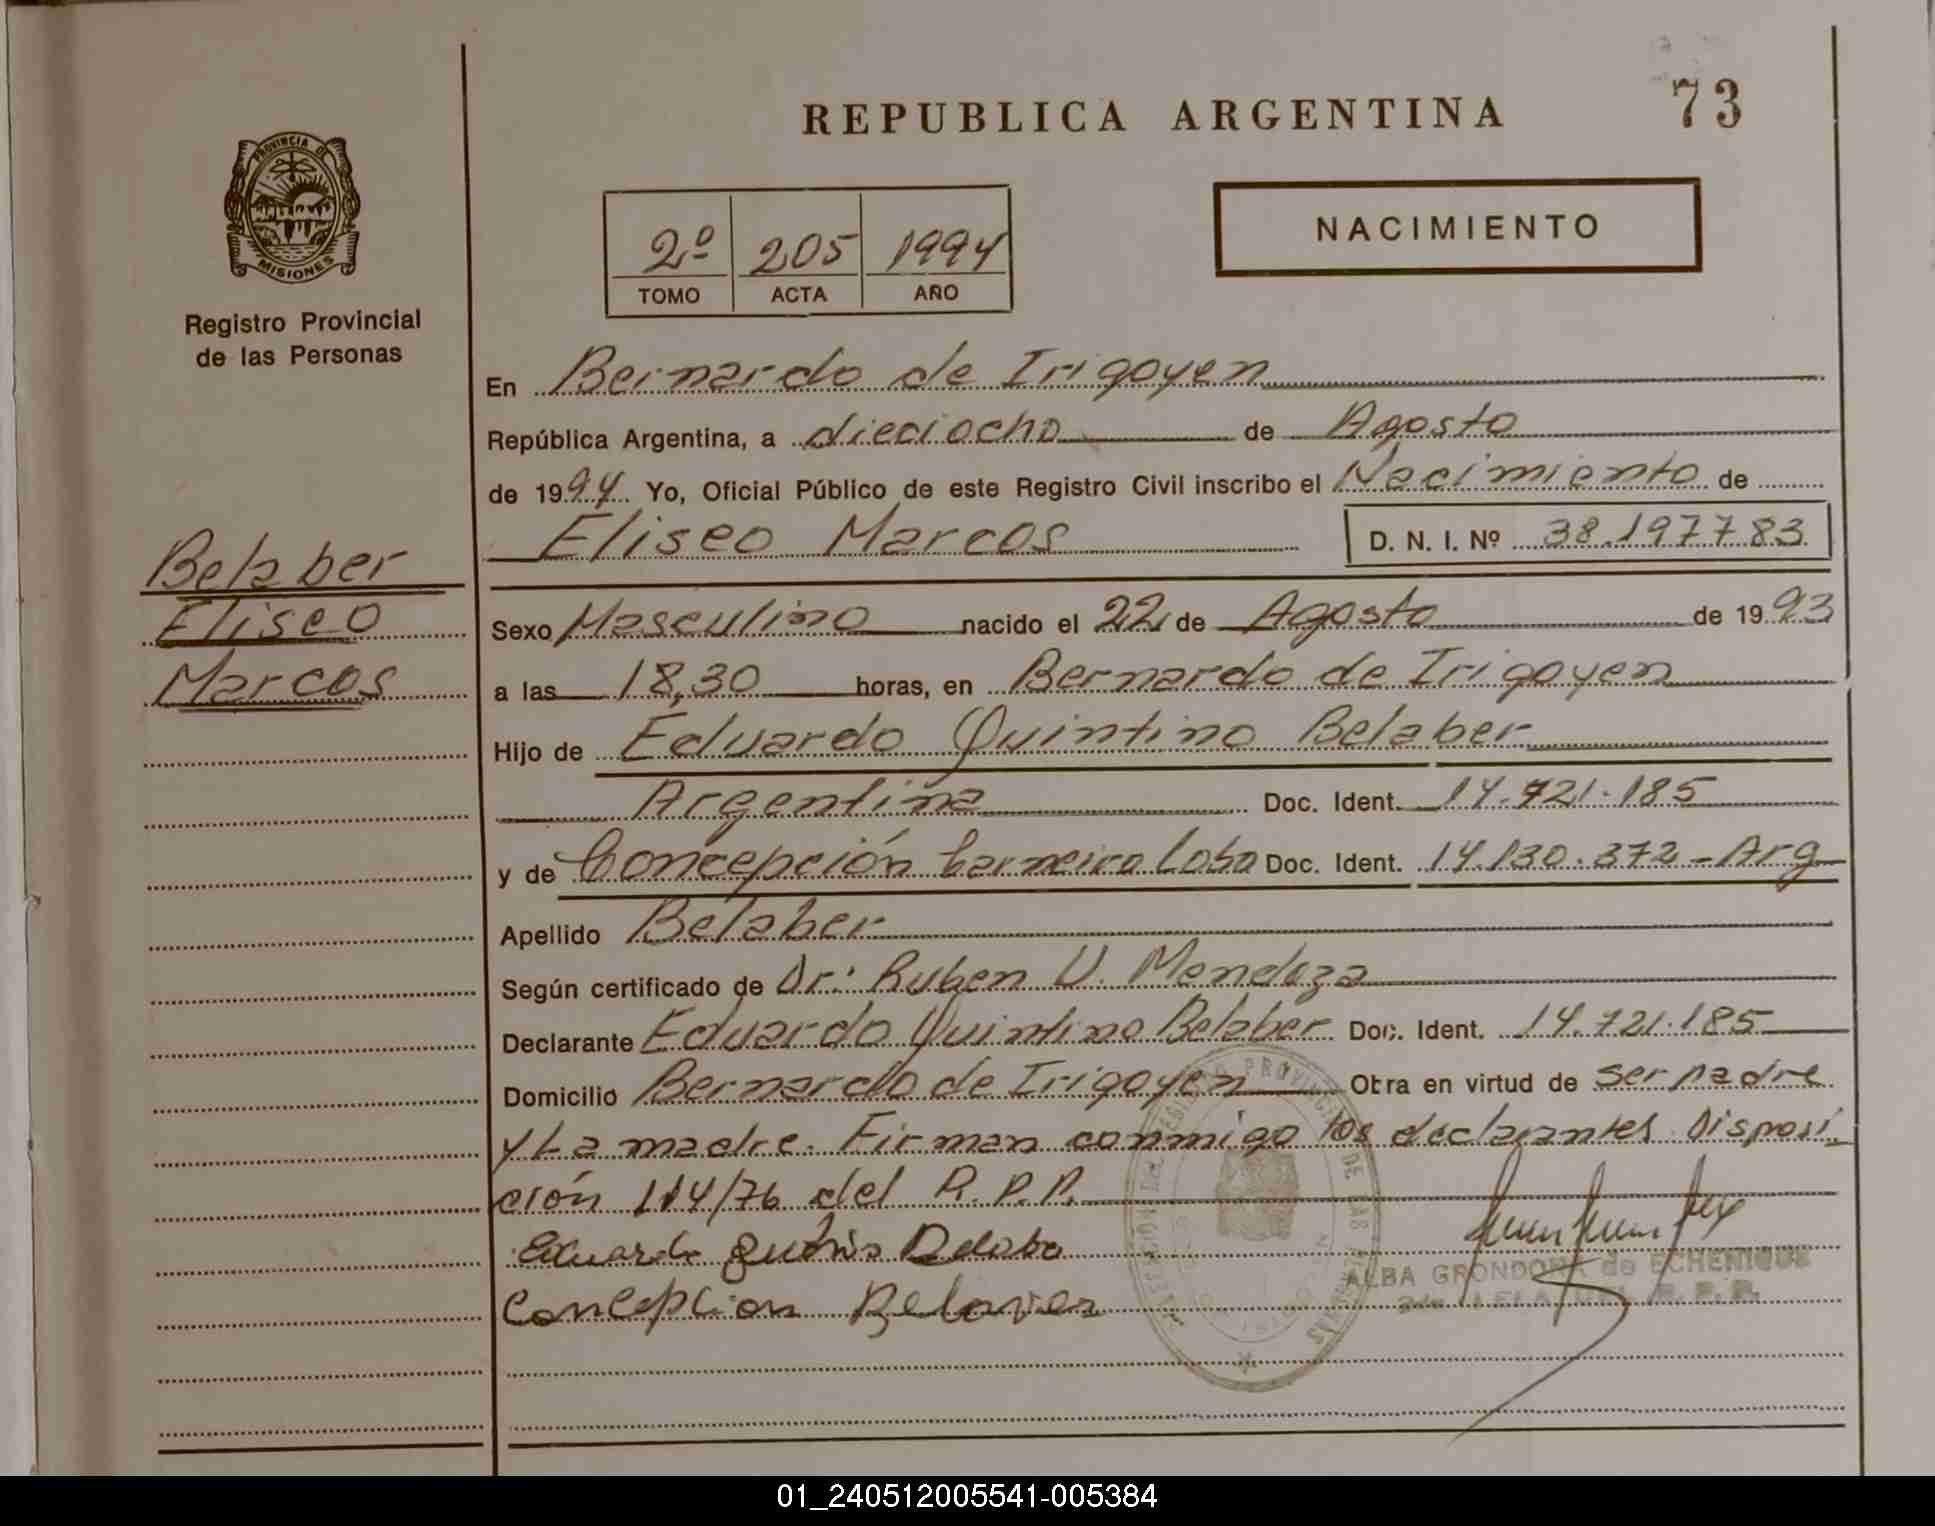 73
REPUBLICA ARGENTINA
NACIMIENTO
PROVINCIA DE
MISIONES
Registro Provincial
de las Personas
2º 205 1994
TOMO ACTA AÑO
En Bernardo de Irigoyen
República Argentina, a dieciocho de Agosto
de 1994 Yo, Oficial Público de este Registro Civil inscribo el Nacimiento de
Eliseo Marcos D. N. I. Nº 38.197783
Belaber
Eliseo
Marcos
Sexo Masculino nacido el 22 de Agosto de 1993
a las 18,30 horas, en Bernardo de Irigoyen
Hijo de Eduardo Quintino Belaber
Argentina Doc. Ident. 14.721.185
y de Concepción Carneiro Lobo Doc. Ident. 14.130.372 - Arg
Apellido Belaber
Según certificado de Dr: Ruben U. Mendoza
Declarante Eduardo Quintino Belaber Doc. Ident. 14.721.185
Domicilio Bernardo de Irigoyen Obra en virtud de ser padre
y La madre. Firman conmigo los declarantes Disposi
ción 114/76 del R.P.P.
Eduardo
Concepcion
ALBA GRONDONA de ECHENIQUE
R. P. P.
01_240512005541-005384